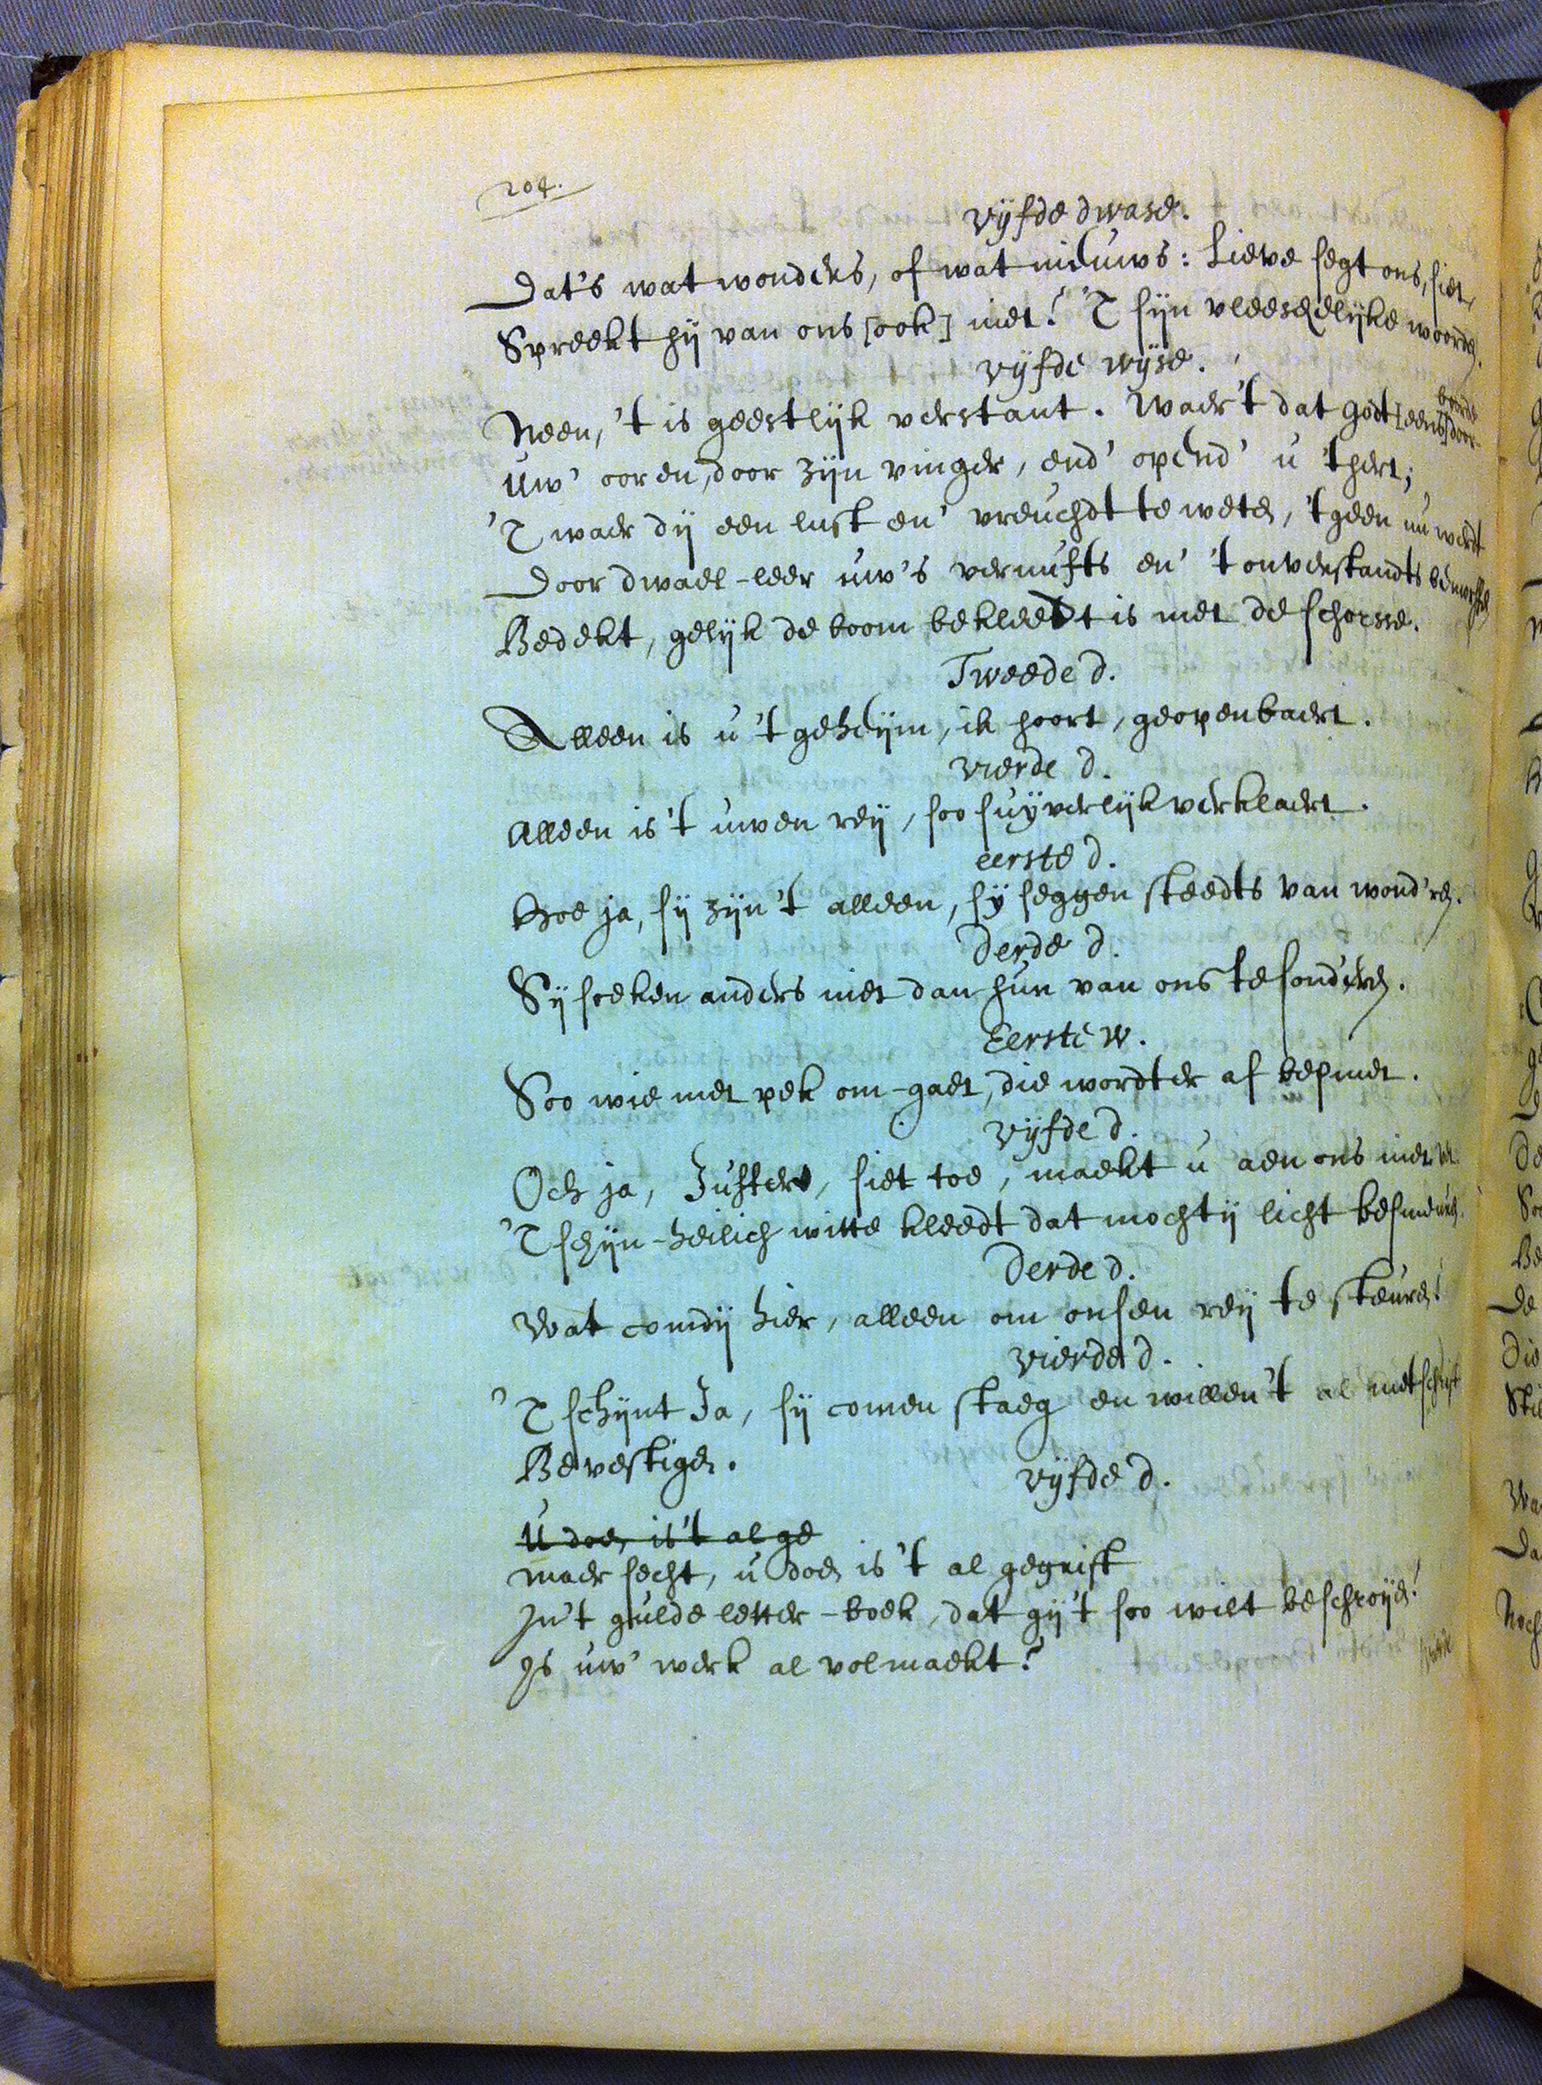 204.
vijfde dwase.
Dat's wat wonders, of wat nieuws: Lieve segt ons, siet,
Spreekt hij van ons [ook] niet? 'T sijn vleeschelijke woorden.
vijfde wijse.
Neen, 't is geestlijk verstant. Waer't dat Godt [eens] door-
boorde
Uw' ooren, door zijn vinger, end' opend' u 't hert;
'T waer dij een lust en' vreuchdt te weten, 't geen nu werdt
Door dwael-leer uw's vernufts en' 't onverstandts
Bedekt, gelijk de boom bekleedt is met de schorsse.
Tweede d.
Alleen is u 't geheijm, ik hoort, geopenbaert.
vierde d.
Alleen is 't uwen reij, soo suijverlijk verklaert.
eerste d.
Hoe ja, sij zijn 't alleen, sij seggen steedts van wond'ren.
Derde d.
Sij soeken anders niet dan hun van ons te sond'ren.
Eerste w.
Soo wie met pek om-gaet, die wordter af besmet.
vijfde d.
Och ja, Justers, siet toe, maekt u aen ons niet vet
'T schijn-heilich witte kleedt dat mochtij licht besmeuren.
Derde d.
Wat comdij hier, alleen om onsen reij te steuren?
vierde d.
'T schijnt Ja, sij comen staeg en willen't al met schrift
Bevestigen.
vijfde d.
U doen is 't al ge
maer secht, u doen is 't al gegrift
In't gulde letter-boek, dat gij't soo wilt beschroijen?
Is uw' werk al volmaekt?